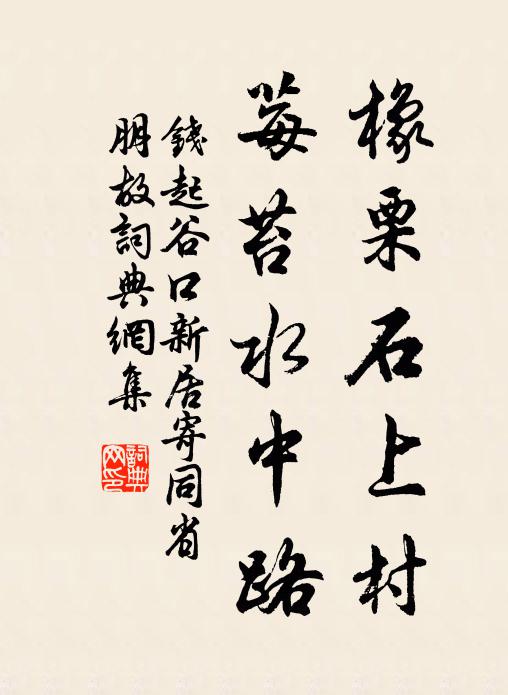 橡栗石上村
莓苔水中路
錢起谷口新居寄同省
朋故詞典網集
詞典
网印